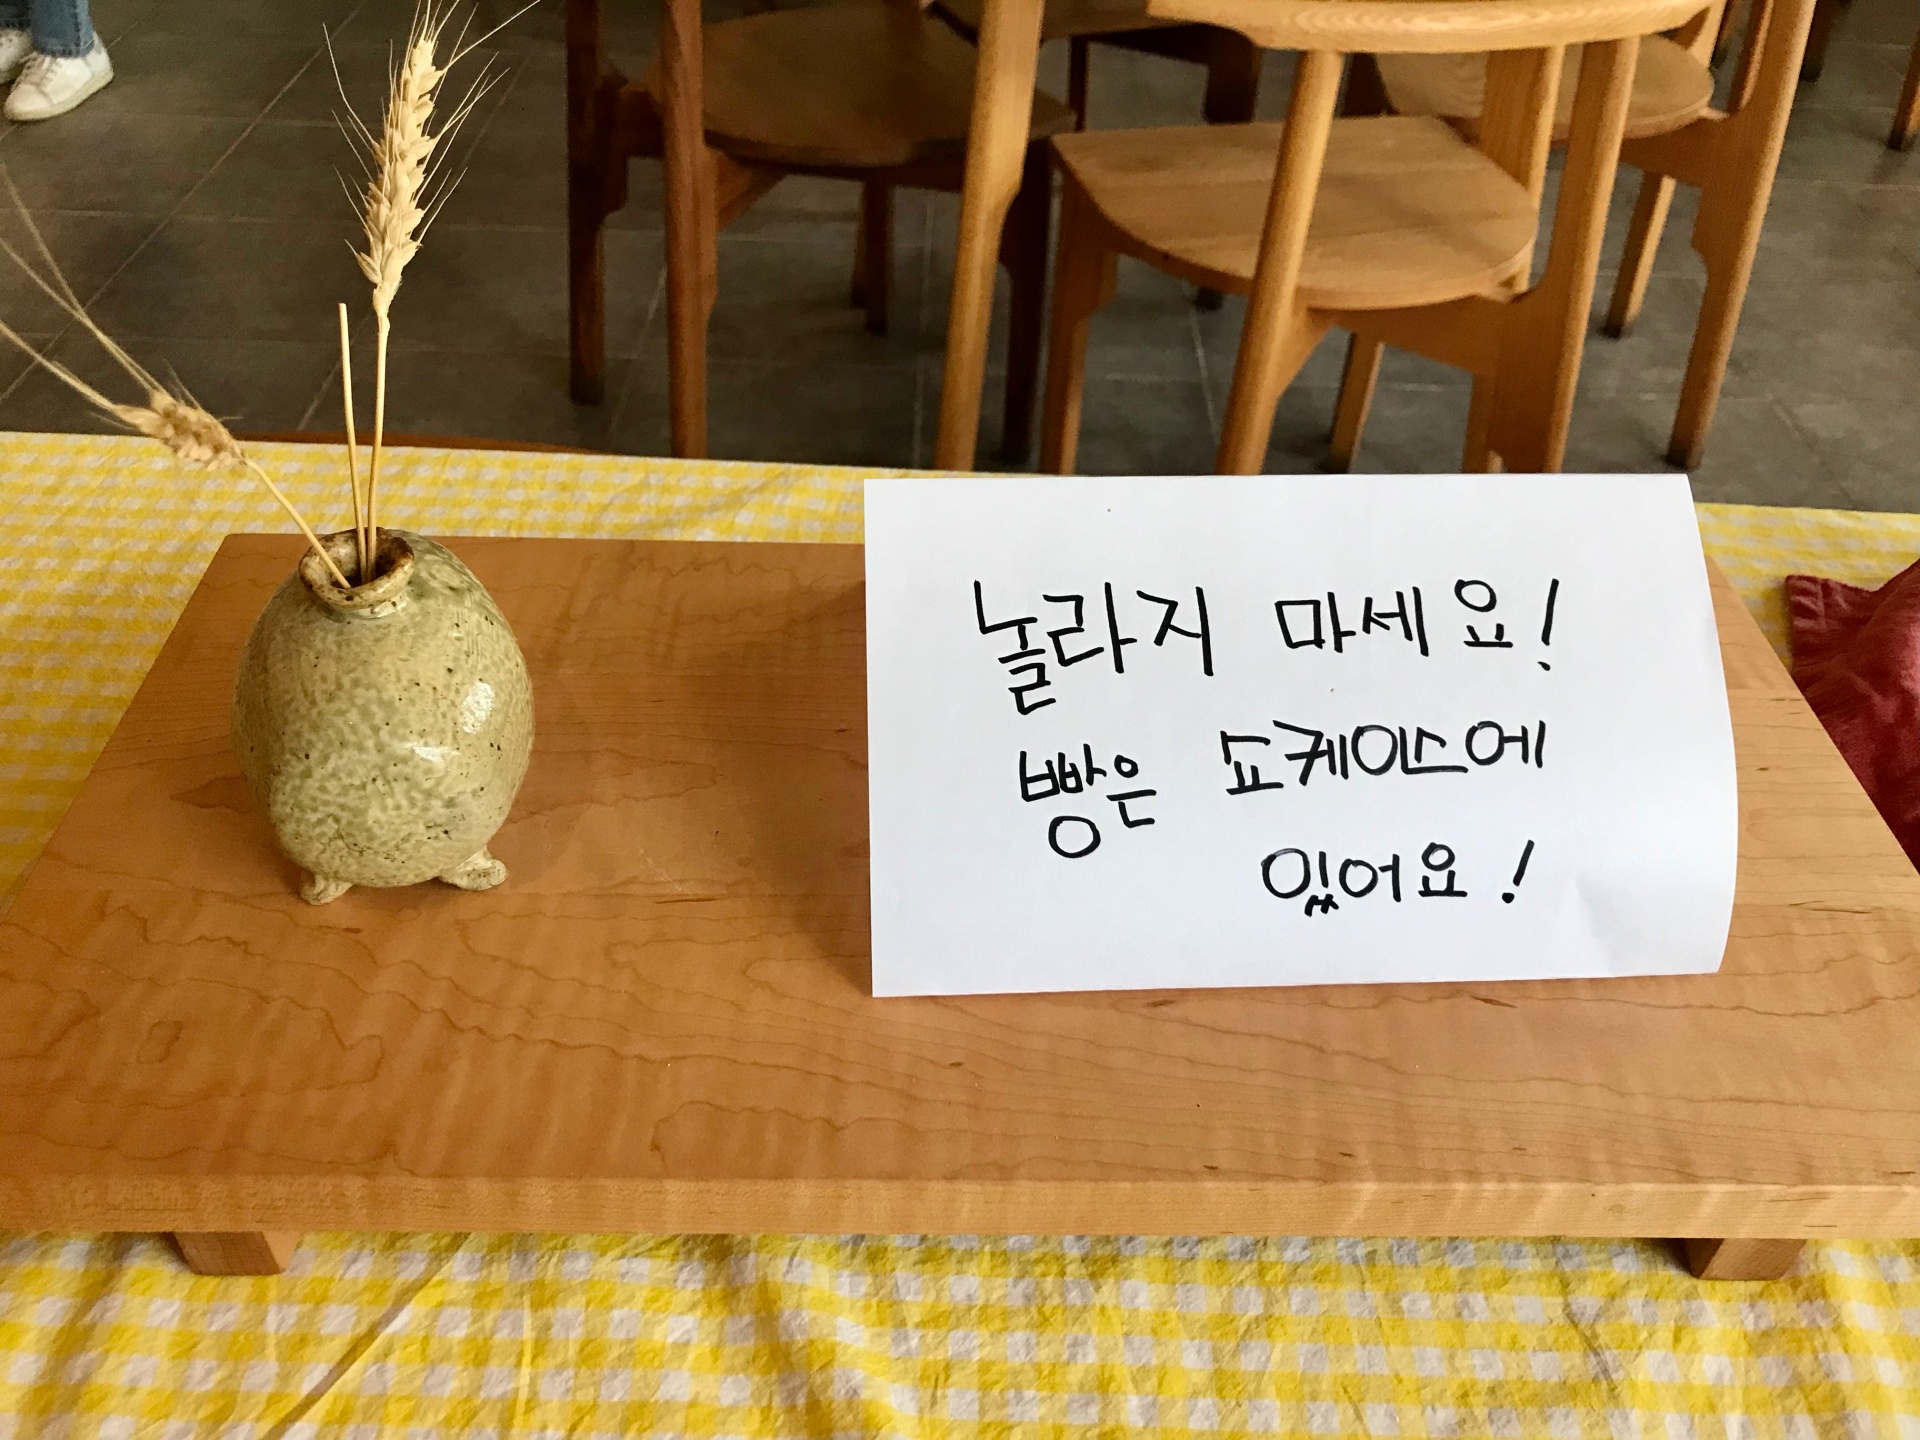 놀라지 마세요!
빵은 쇼케이스에
있어요!